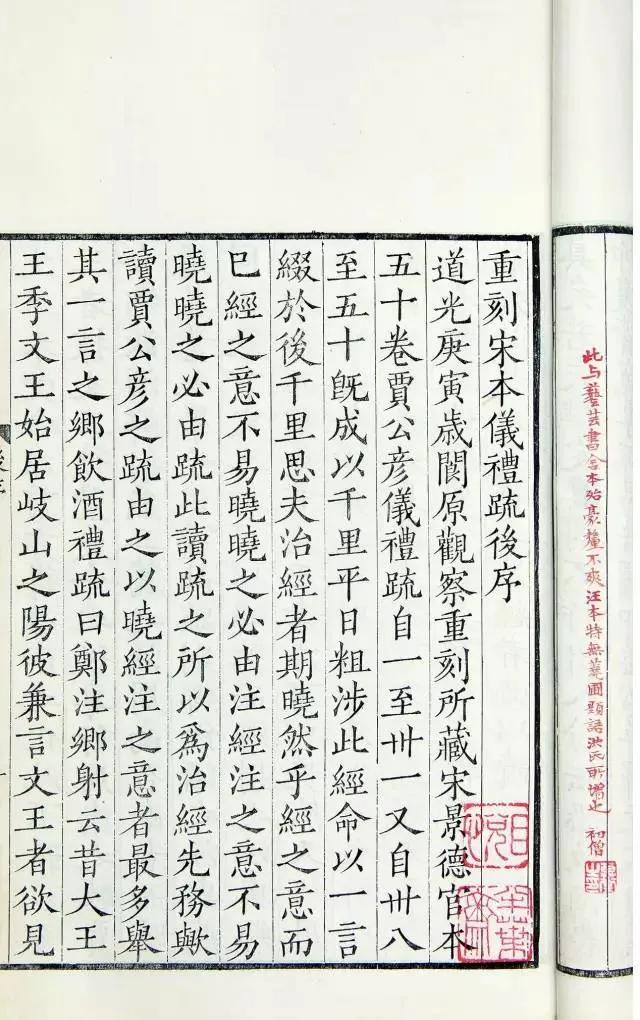 此与藝芸書舍本殆豪釐不爽汪本特無蕘圃題語洪氏所增也 初僧
重刻宋本儀禮疏後序
道光庚寅歲閬原觀察重刻所藏宋景德官本
五十卷賈公彦儀禮疏自一至卅一又自卅八
至五十旣成以千里平日粗涉此經命以一言
綴於後千里思夫治經者期曉然乎經之意而
已經之意不易曉曉之必由注經注之意不易
曉曉之必由疏此讀疏之所以爲治經先務歟
讀賈公彦之疏由之以曉經注之意者最多舉
其一言之鄉飲酒禮疏曰鄭注鄉射云昔大王
王季文王始居岐山之陽彼兼言文王者欲見